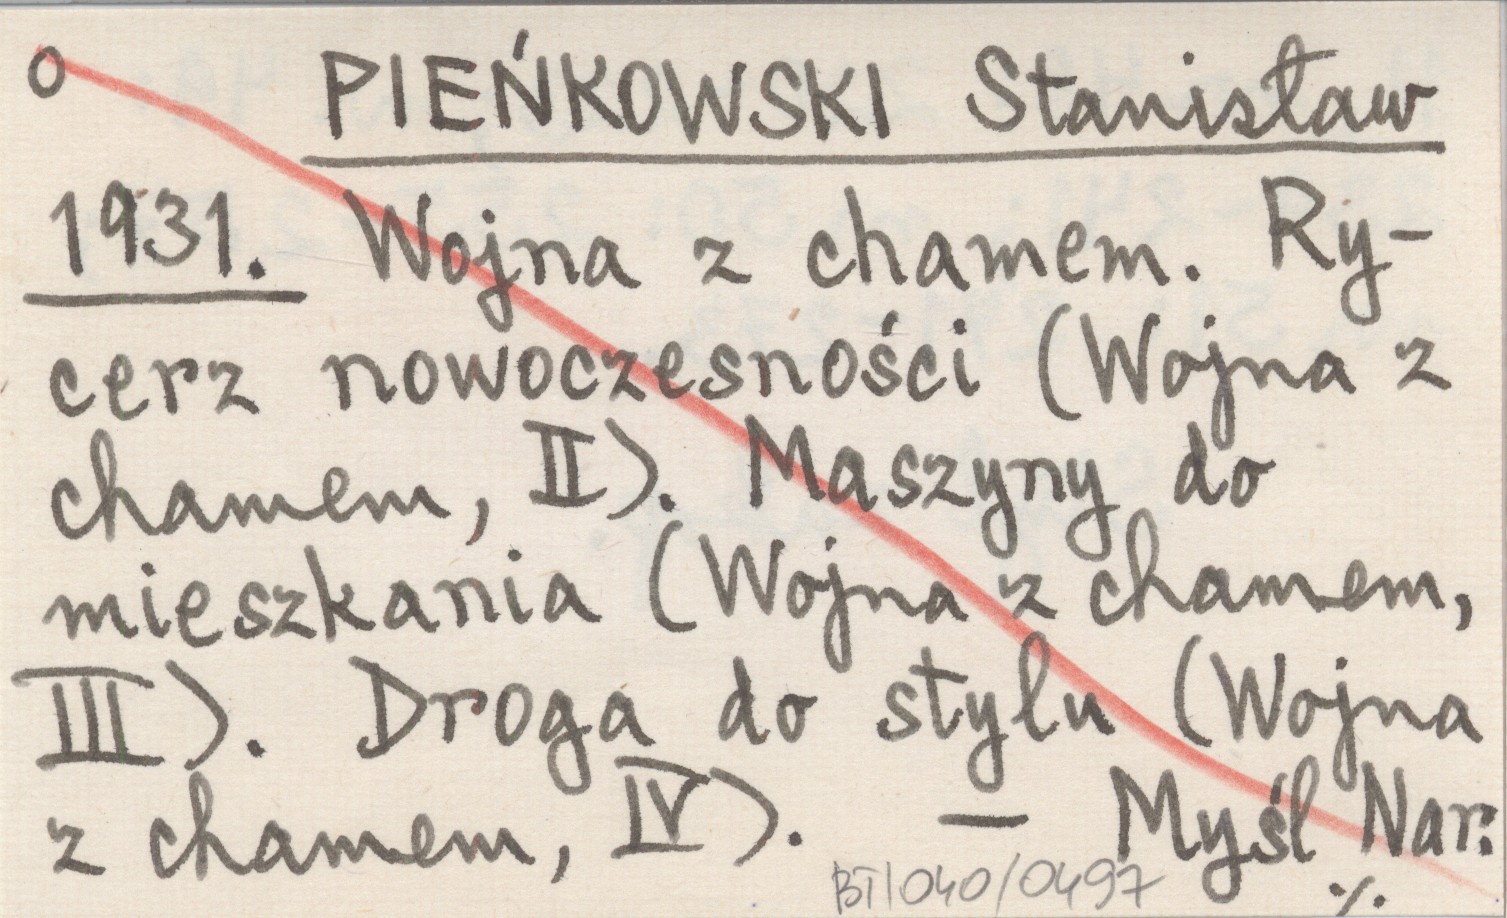 o PIEŃKOWSKI Stanisław
1931. Wojna z chamem. Ry-
cerz nowoczesności (Wojna z
chamem, II). Maszyny do
mieszkania (Wojna z chamem,
III). Droga do stylu (Wojna
z chamem, IV). — Myśl Nar:
BT/040/0497 ·/.